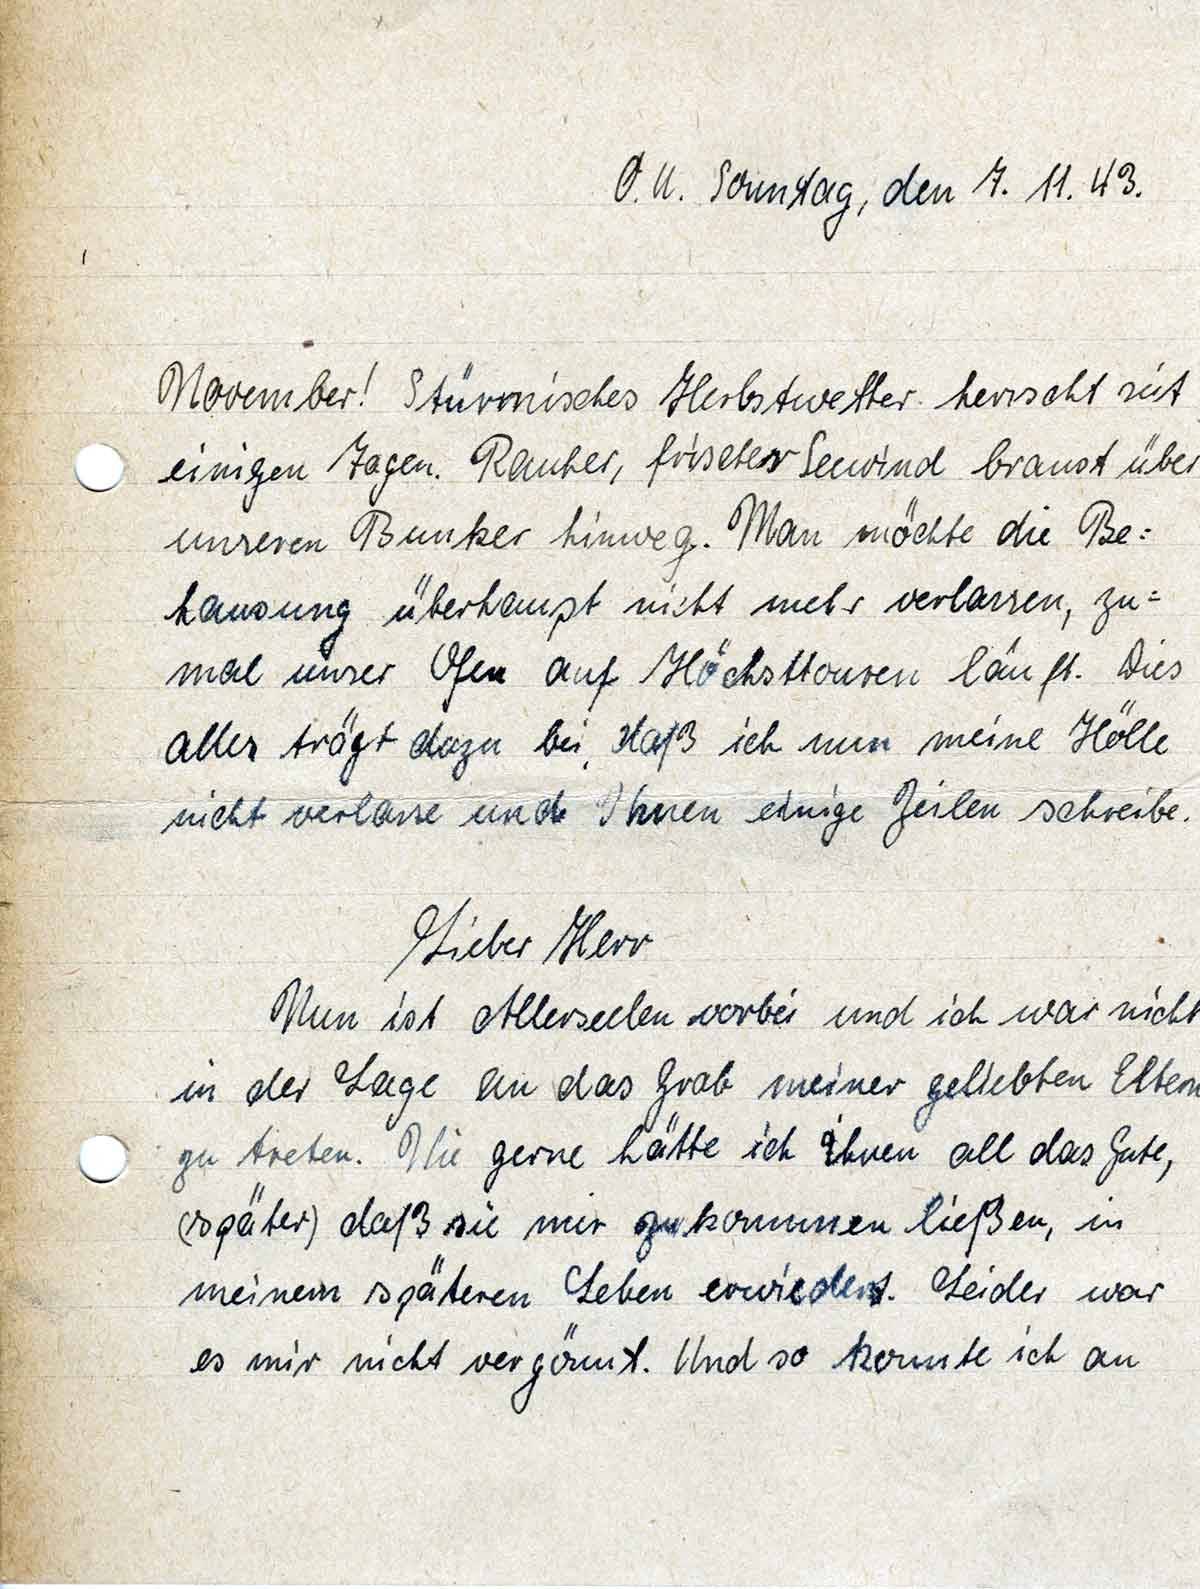 O.U. Sonntag, den 7. 11. 43.
November! Stürmisches Herbstwetter herrscht seit
einigen Tagen. Rauher, frischer Seewind braust über
unseren Bunker hinweg. Man möchte die Be=
hausung überhaupt nicht mehr verlassen, zu=
mal unser Ofen auf Höchsttouren läuft. Dies
alles trägt dazu bei, daß ich nun meine Hölle
nicht verlasse und Ihnen einige Zeilen schreibe.
Lieber Herr
Nun ist Allerseelen vorbei und ich war nicht
in der Lage an das Grab meiner geliebten Eltern
zu treten. Wie gerne hätte ich ihnen all das Gute,
(später) daß sie mir zukommen ließen, in
meinem späteren Leben erwiedert. Leider war
es mir nicht vergönnt. Und so konnte ich an